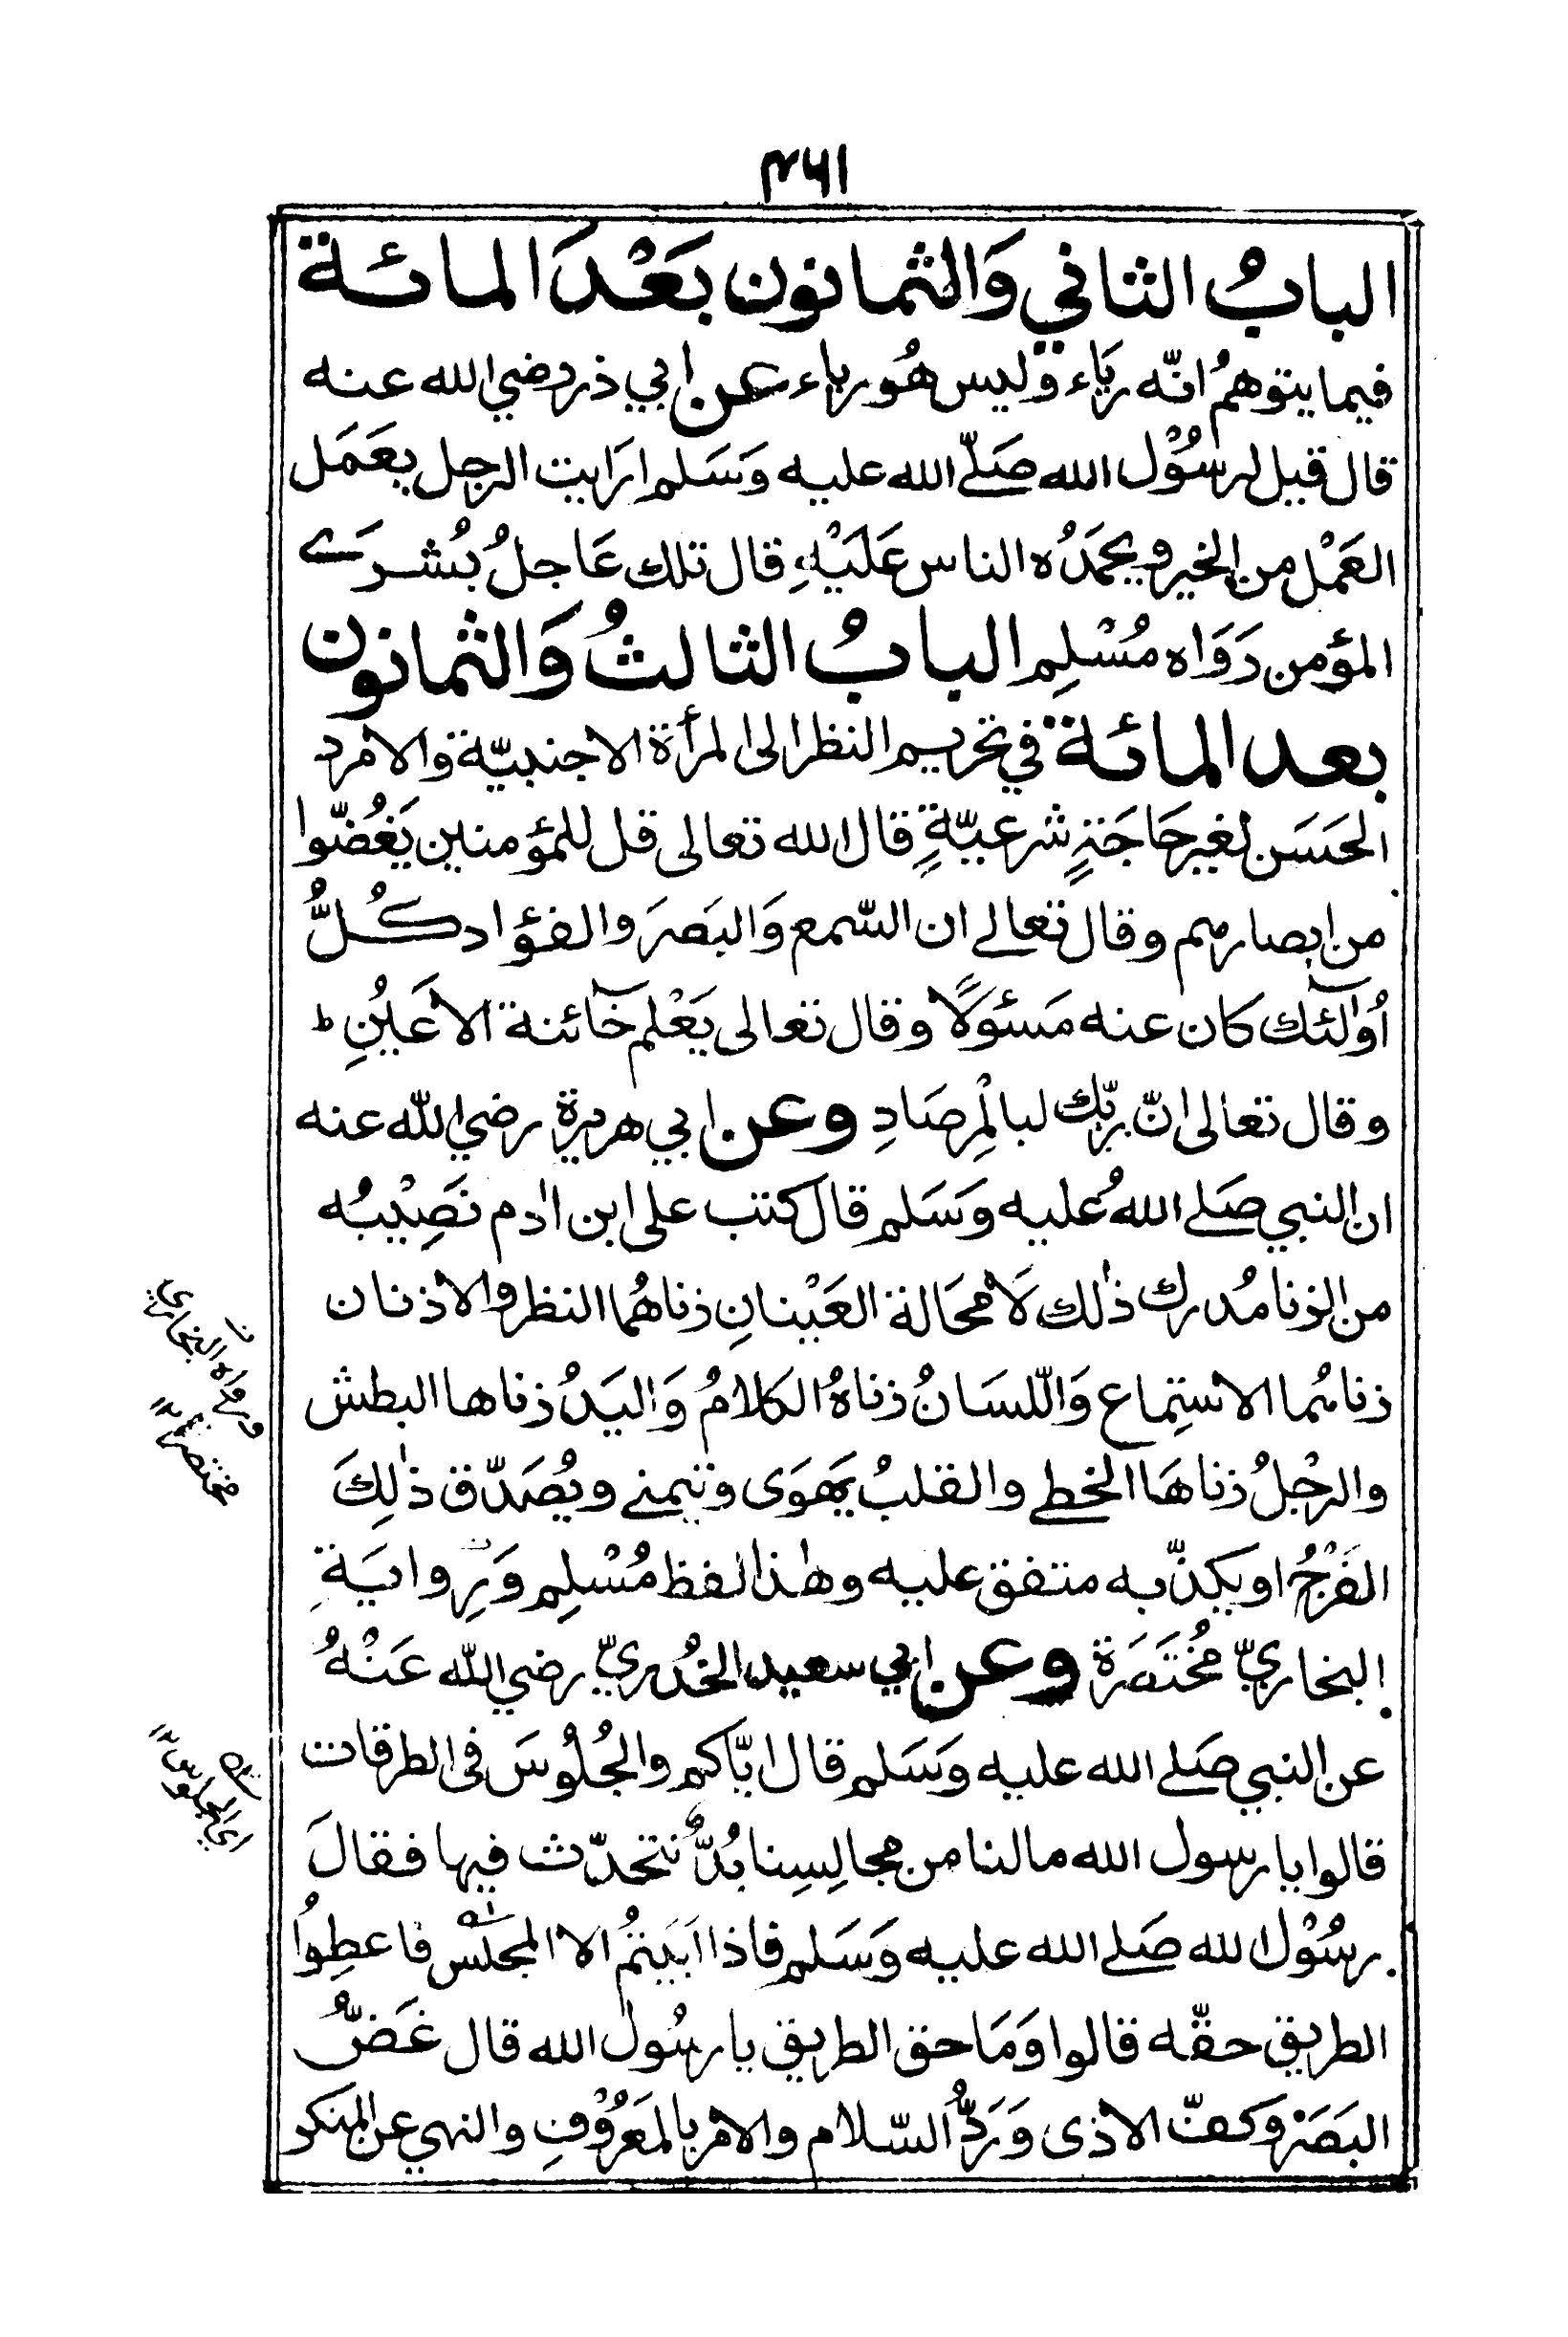 ۴۶۱
البابُ الثاني وَالثمانون بَعْدَ المائة
فيما يتوهمُ انّه رِيَاء وَليس هُو رياء عن ابي ذر رضي الله عنه
قال قيل لرسُوْل الله صَلّے الله عليه وَسَلم ارَايت الرجل يعَمَل
العَمْل من الخير ويحمَدُه الناس عَلَيْهِ قال تلك عَاجلُ بُشرَے
المؤمن رَوَاه مُسْلِم البابُ الثالثُ وَالثمانون
بعد المائة في تحريم النظر الى المرأة الاجنبيّة والامرد
الحَسَن لغير حَاجَةٍ شرعيّةٍ قال الله تعالى قل للمؤمنين يَغُضّوا
من ابصارهم وقال تعالے ان السّمع وَالبَصَرَ والفؤاد كُلُّ
اُولٰٓئك كان عنه مَسئولًا وقال تعالى يَعْلم خَآئنة الاعَيُنِ ط
وقال تعالى انّ ربّك لبالْمِرصَادِ وعن ابي هريرة رضي الله عنه
ان النبي صَلے اللهُ عليه وَسَلم قال كتب على ابن اٰدم نَصِيْبُه
من الزنا مُدرك ذٰلك لَا محَالة العَيْنانِ زناهُما النظر والاذنان
زناهُما الاستِماع وَاللّسَانُ زناهُ الكلامُ وَاليَدُ زناها البطش
والرِجْلُ زناهَا الخطے والقلبُ يَهوَى ويتمنے ويُصَدّق ذٰلِكَ
الفَرْجُ او يكذّبه متفق عليه وهٰذا لفظ مُسْلِم وَرِوايَة
البخاريّ مُختَصَرَة وعن ابي سعيد الخُدريّ رضي الله عَنْهُ
عن النبي صَلے الله عليه وَسَلم قال ايّاكم والجُلُوسَ فى الطرقات
قالوا يا رسول الله مالنا من مجالِسِنا بُدٌّ نتحدّث فيها فقالَ
رسُوْل الله صَلے الله عليه وَسَلم فاذا ابَيَتمُ الا المجلس فاعطِوُا
الطريق حقّه قالوا وَمَا حق الطريق يا رسُول الله قال غَضُّ
البَصَرْ وكفّ الاذى وَرَدُّ السّلام والامر بالمَعرُوْفِ والنهي عن المنكر
ورواه البخاري
مختصرة
اي الجلوس